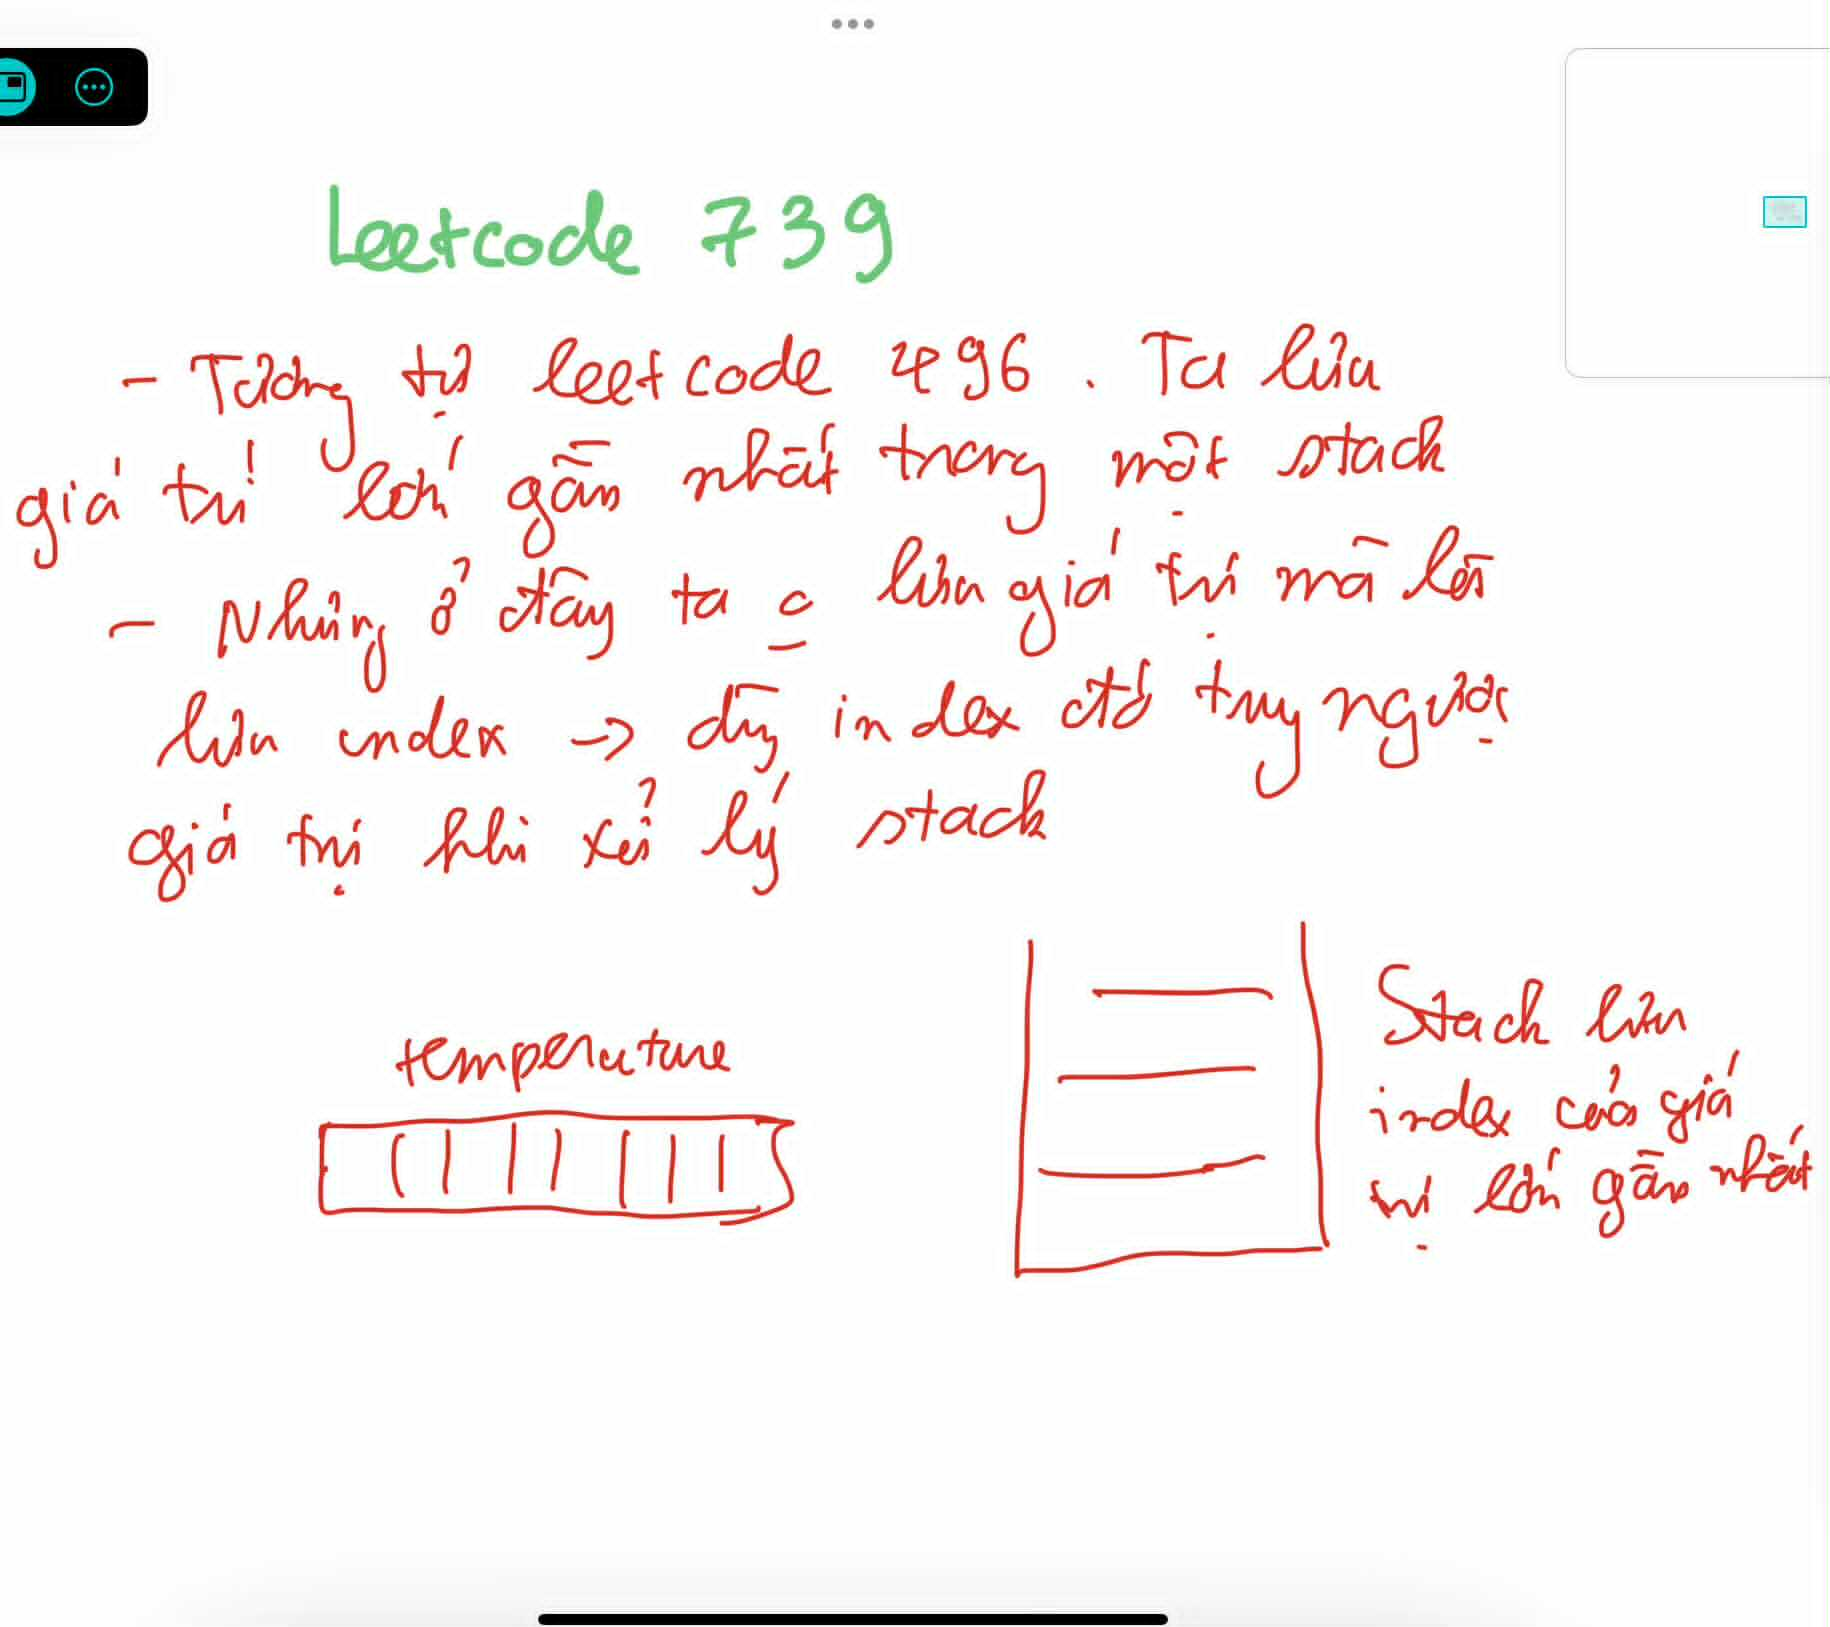 Leetcode 739
- Tương tự leetcode 496. Ta lưu
giá trị lớn gần nhất trong một stack
- Nhưng ở đây ta o lưu giá trị mà lại
lưu index -> dùng index đó truy ngược
giá trị khi xử lý stack
temperature
Stack lưu
index của giá
trị lớn gần nhất